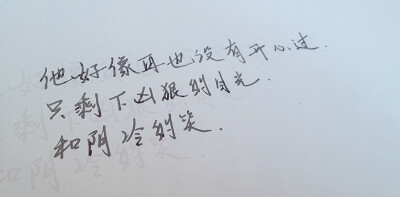 他好像再也没有开心过.
只剩下凶狠的目光.
和阴冷的笑.